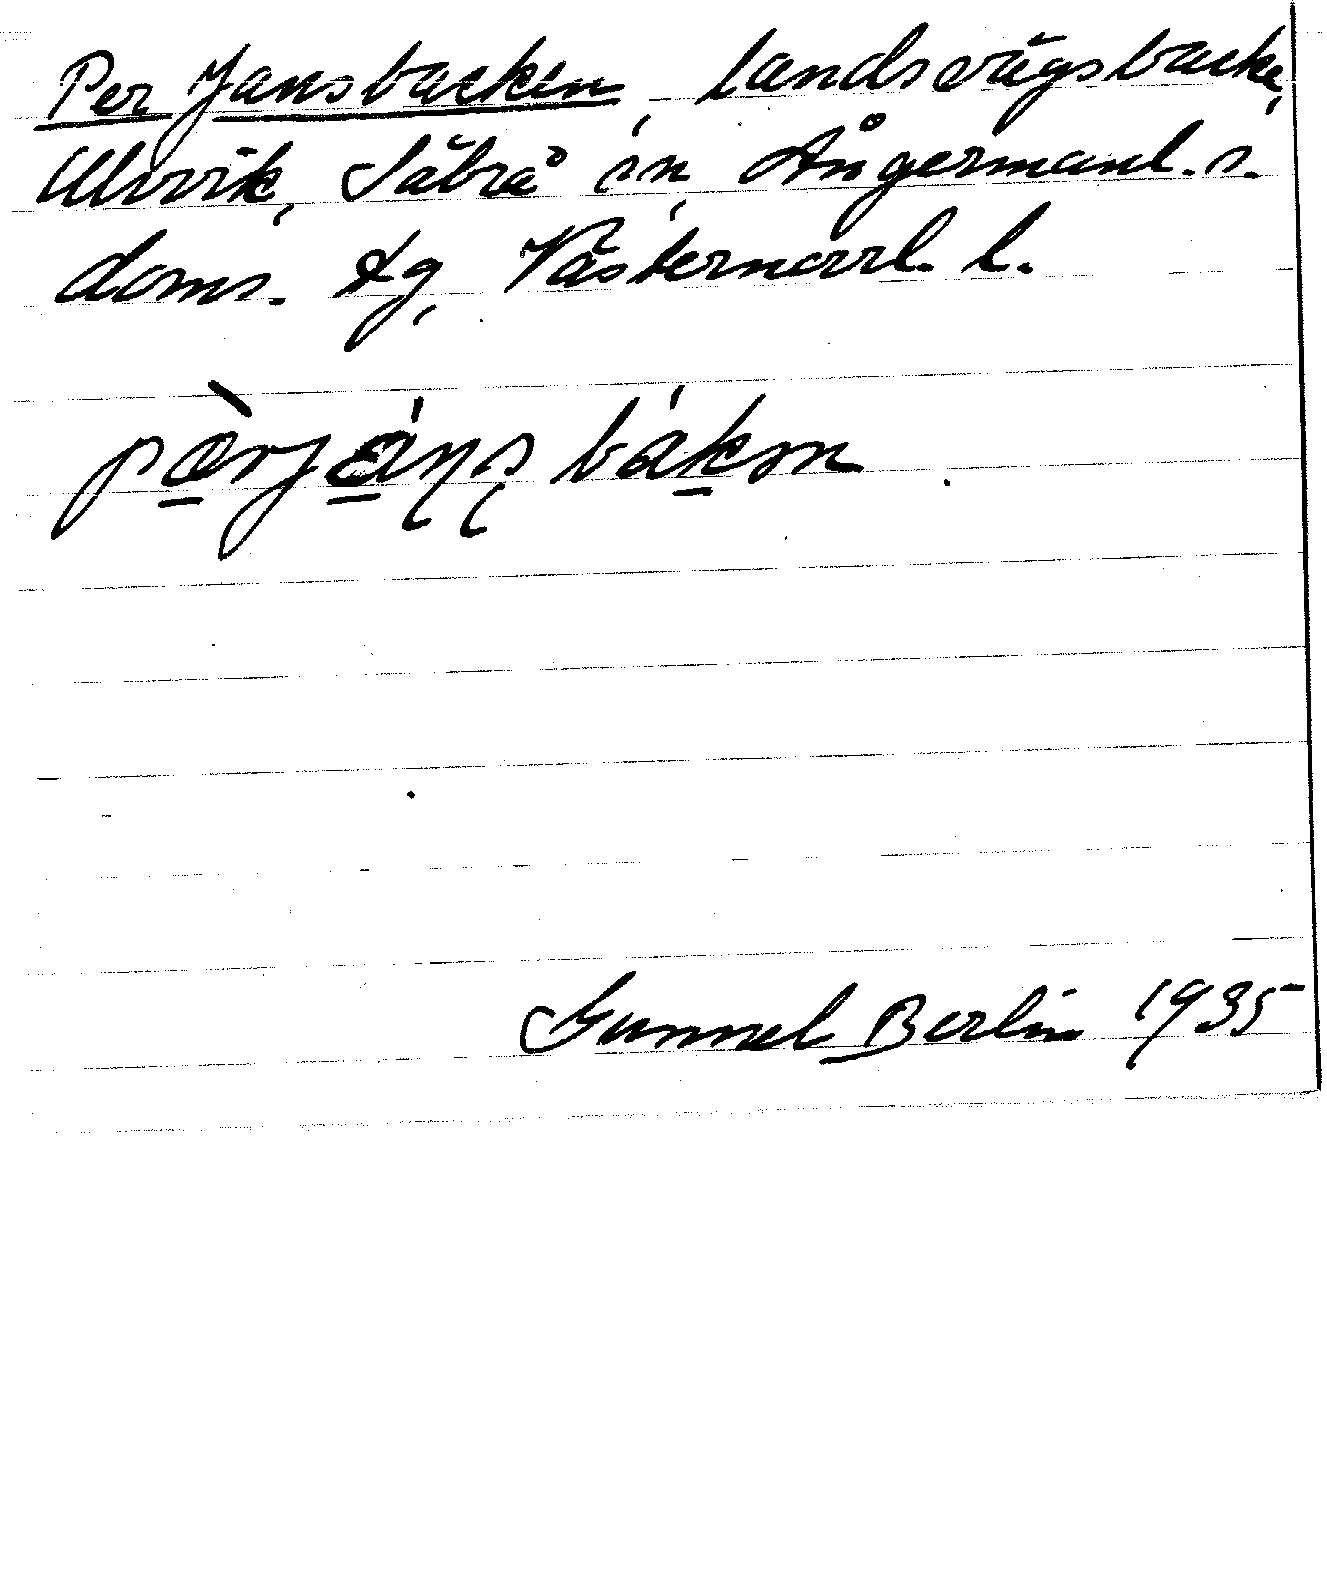 Per Jansbacken, landsvägsbacke,
Ulvvik, Säbrå sn, Ångermanl. s.
doms. tg, Västernorrl. l.
Gunnel Berlin 1935